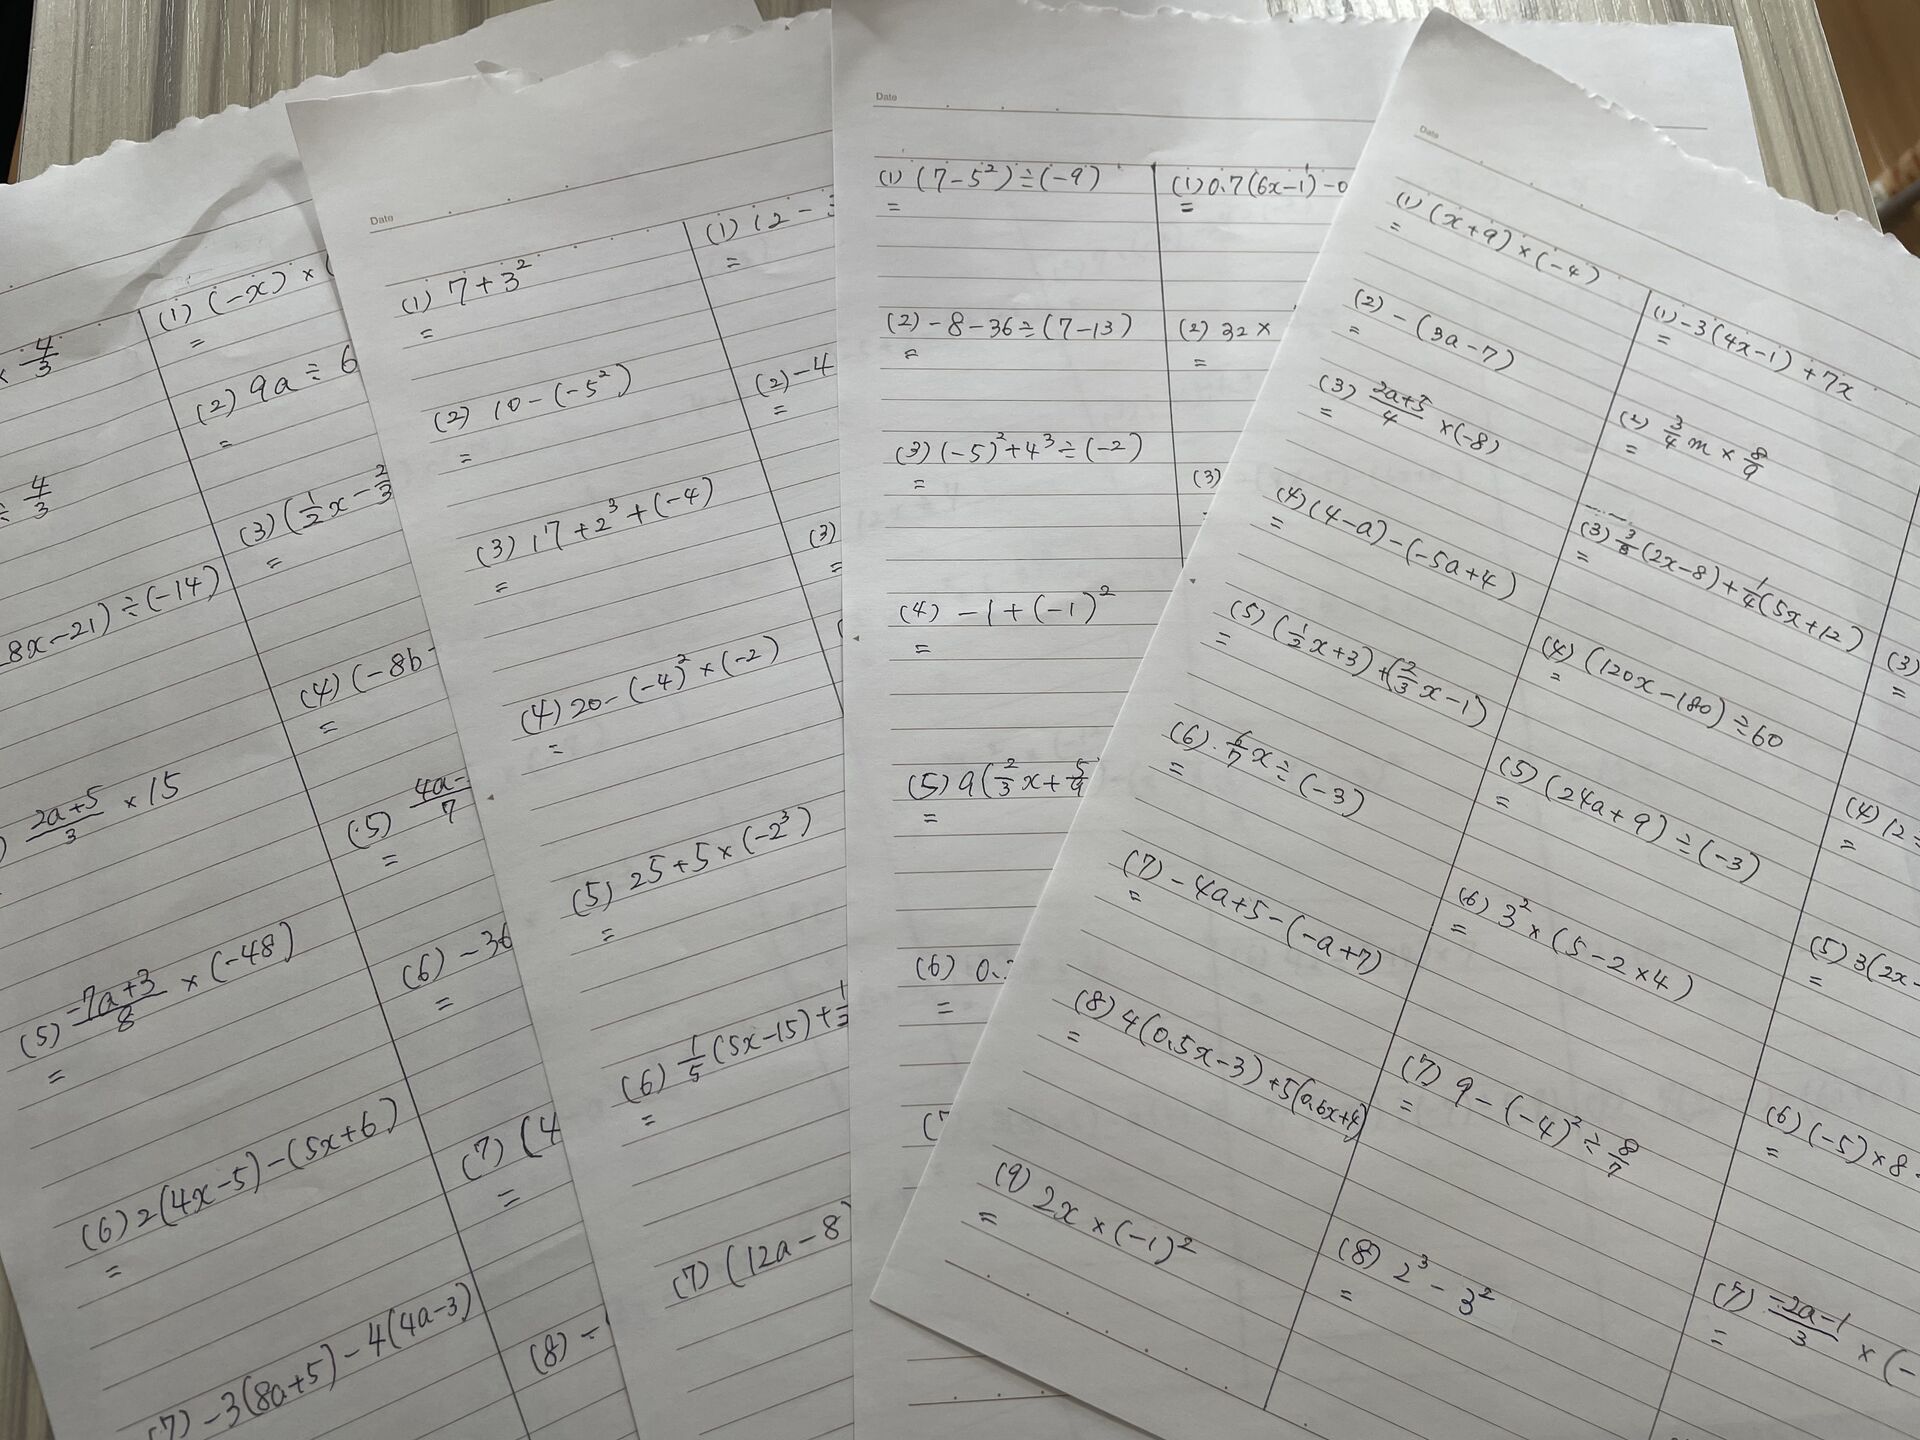 × 4/3
÷ 4/3
8x-21)÷(-14)
) (2a+5)/3 ×15
=
(5) (-7a+3)/8 ×(-48)
=
(6) 2(4x-5)-(5x+6)
=
(7) -3(8a+5)-4(4a-3)
(1) (-x)×(
=
(2) 9a÷6
=
(3) (1/2x-2/3
=
(4) (-8b-
=
(5) (4a-)/7
=
(6) -36
=
(7) (4
=
(8) -
Date
(1) 7+3²
=
(2) 10-(-5²)
=
(3) 17+2³+(-4)
=
(4) 20-(-4)²×(-2)
=
(5) 25+5×(-2³)
=
(6) 1/5(5x-15)+
=
(7) (12a-8
(1) 12-3
=
(2) -4
=
(3)
=
Date
(1) (7-5²)÷(-9)
=
(2) -8-36÷(7-13)
=
(3) (-5)²+4³÷(-2)
=
(4) -1+(-1)²
=
(5) 9(2/3x+5/9
=
(6) 0.
=
(7
(1) 0.7(6x-1)-0
=
(2) 32×
=
(3)
Date
(1) (x+9)×(-4)
=
(2) -(3a-7)
=
(3) (2a+5)/4 ×(-8)
=
(4) (4-a)-(-5a+4)
=
(5) (1/2x+3)+(2/3x-1)
=
(6) 6/7x÷(-3)
=
(7) -4a+5-(-a+7)
=
(8) 4(0.5x-3)+5(0.6x+4)
=
(9) 2x×(-1)²
=
(1) -3(4x-1)+7x
=
(2) 3/4m×8/9
=
(3) 3/8(2x-8)+1/4(5x+12)
=
(4) (120x-180)÷60
=
(5) (24a+9)÷(-3)
=
(6) 3²×(5-2×4)
=
(7) 9-(-4)²÷8/7
=
(8) 2³-3²
=
(3)
=
(4) 12÷
=
(5) 3(2x-
=
(6) (-5)×8
=
(7) (-2a-1)/3 ×(-
=